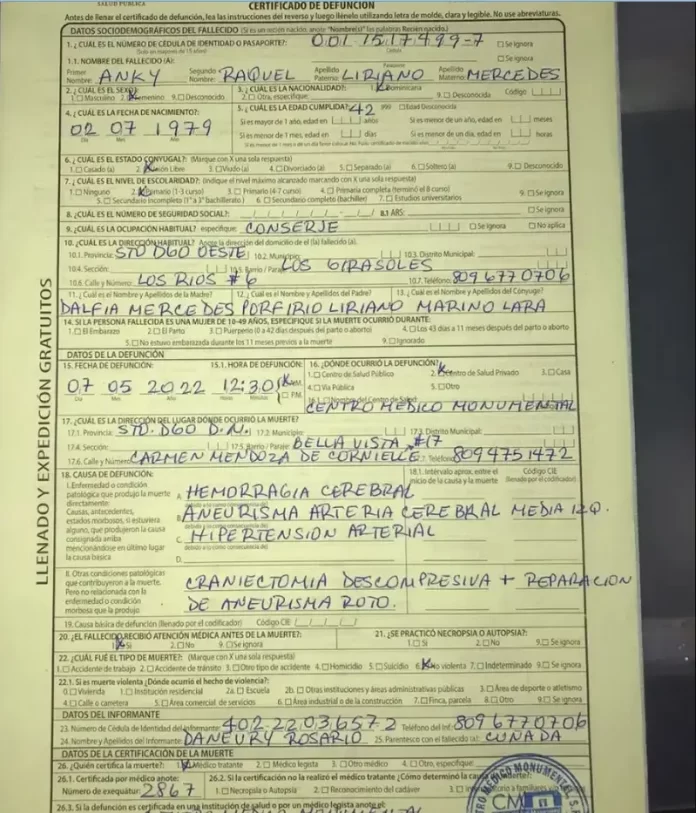 SALUD PÚBLICA
CERTIFICADO DE DEFUNCIÓN
Antes de llenar el certificado de defunción, lea las instrucciones del reverso y luego llénelo utilizando letra de molde, clara y legible. No use abreviaturas.
DATOS SOCIODEMOGRÁFICOS DEL FALLECIDO (Si es un recién nacido, anote "Nombre(s)" las palabras Recién nacido.)
1. ¿CUÁL ES EL NÚMERO DE CÉDULA DE IDENTIDAD O PASAPORTE? 001 1517499-7 Se ignora
1.1. NOMBRE DEL FALLECIDO (A): Se ignora
Primer Nombre: ANKY Segundo Nombre: RAQUEL Apellido Paterno: LIRIANO Apellido Materno: MERCEDES
2. ¿CUÁL ES EL SEXO? 1. Masculino 2. Femenino 9. Desconocido
3. ¿CUÁL ES LA NACIONALIDAD? 1. Dominicana 2. Otra, especifique: 9. Desconocida Código
4. ¿CUÁL ES LA FECHA DE NACIMIENTO? 02 07 1979 Día Mes Año
5. ¿CUÁL ES LA EDAD CUMPLIDA? 42 Edad Desconocida
Si es mayor de 1 año, edad en años Si es menor de un año, edad en meses
Si es menor de 1 mes, edad en días Si es menor de un día, edad en horas
6. ¿CUÁL ES EL ESTADO CONYUGAL? (Marque con X una sola respuesta)
1. Casado (a) 2. Unión Libre 3. Viudo (a) 4. Divorciado (a) 5. Separado (a) 6. Soltero (a) 9. Desconocido
7. ¿CUÁL ES EL NIVEL DE ESCOLARIDAD? (Indique el nivel máximo alcanzado marcando con X una sola respuesta)
1. Ninguno 2. Primario (1-3 curso) 3. Primario (4-7 curso) 4. Primaria completa (terminó el 8 curso) 9. Se ignora
5. Secundario incompleto (1° a 3° bachillerato) 6. Secundario completo (bachiller) 7. Estudios universitarios
8. ¿CUÁL ES EL NÚMERO DE SEGURIDAD SOCIAL? 8.1 ARS: Se ignora
9. ¿CUÁL ES LA OCUPACIÓN HABITUAL? especifique: CONSERJE Se ignora No aplica
10. ¿CUÁL ES LA DIRECCIÓN HABITUAL? Anote la dirección del domicilio de el (la) fallecido (a).
10.1. Provincia: STO DGO OESTE 10.2. Municipio: 10.3. Distrito Municipal:
10.4. Sección: 10.5. Barrio / Paraje: LOS GIRASOLES
10.6. Calle y Número: LOS RIOS #6 10.7. Teléfono: 809 6770706
11. ¿Cuál es el Nombre y Apellidos de la Madre? 12. ¿Cuál es el Nombre y Apellidos del Padre? 13. ¿Cuál es el Nombre y Apellidos del Cónyuge?
DALFIA MERCEDES PORFIRIO LIRIANO MARINO LARA
14. SI LA PERSONA FALLECIDA ES UNA MUJER DE 10-49 AÑOS, ESPECIFIQUE SI LA MUERTE OCURRIÓ DURANTE:
1. El Embarazo 2. El Parto 3. Puerperio (0 a 42 días después del parto o aborto) 4. Los 43 días a 11 meses después del parto o aborto
5. No estuvo embarazada durante los 11 meses previos a la muerte 9. Ignorado
DATOS DE LA DEFUNCIÓN
15. FECHA DE DEFUNCIÓN: 15.1. HORA DE DEFUNCIÓN: 16. ¿DÓNDE OCURRIÓ LA DEFUNCIÓN?
07 05 2022 12:30 A.M. P.M.
Día Mes Año Horas Minutos
1. Centro de Salud Público 2. Centro de Salud Privado 3. Casa
4. Vía Pública 5. Otro
16.1. Nombre del Centro de Salud: CENTRO MEDICO MONUMENTAL
17. ¿CUÁL ES LA DIRECCIÓN DEL LUGAR DÓNDE OCURRIÓ LA MUERTE?
17.1. Provincia: STO. DGO D.N. 17.2. Municipio: 17.3. Distrito Municipal:
17.4. Sección: 17.5. Barrio / Paraje: BELLA VISTA #17
17.6. Calle y Número: CARMEN MENDOZA DE CORNIELLE 17.7. Teléfono: 809 4751472
18. CAUSA DE DEFUNCIÓN: 18.1. Intervalo aprox. entre el inicio de la causa y la muerte Código CIE (llenado por el codificador)
I. Enfermedad o condición patológica que produjo la muerte directamente:
Causas, antecedentes, estados morbosos, si estuviera alguno, que produjeron la causa consignada arriba mencionándose en último lugar la causa básica
A. HEMORRAGIA CEREBRAL
B. ANEURISMA ARTERIA CEREBRAL MEDIA IZQ.
C. HIPERTENSION ARTERIAL
D.
II. Otras condiciones patológicas que contribuyeron a la muerte. Pero no relacionada con la enfermedad o condición morbosa que la produjo
CRANIECTOMIA DESCOMPRESIVA + REPARACION
DE ANEURISMA ROTO.
19. Causa básica de defunción (llenado por el codificador) Código CIE
20. ¿EL FALLECIDO RECIBIÓ ATENCIÓN MÉDICA ANTES DE LA MUERTE? 21. ¿SE PRACTICÓ NECROPSIA O AUTOPSIA?
1. Si 2. No 9. Se ignora 1. Si 2. No 9. Se ignora
22. ¿CUÁL FUE EL TIPO DE MUERTE? (Marque con X una sola respuesta)
1. Accidente de trabajo 2. Accidente de tránsito 3. Otro tipo de accidente 4. Homicidio 5. Suicidio 6. No violenta 7. Indeterminado 9. Se ignora
22.1. Si es muerte violenta ¿Dónde ocurrió el hecho de violencia?
0. Vivienda 1. Institución residencial 2a. Escuela 2b. Otras instituciones y áreas administrativas públicas 3. Área de deporte o atletismo
4. Calle o carretera 5. Área comercial de servicios 6. Área industrial o de la construcción 7. Finca, parcela 8. Otro 9. Se ignora
DATOS DEL INFORMANTE
23. Número de Cédula de Identidad del Informante: 402-2203657 2 Teléfono del Inf: 809 6770706
24. Nombre y Apellidos del Informante: DANEURY ROSARIO 25. Parentesco con el fallecido (a): CUNADA
DATOS DE LA CERTIFICACIÓN DE LA MUERTE
26. ¿Quién certifica la muerte? 1. Médico tratante 2. Médico legista 3. Otro médico 4. Otro, especifique:
26.1. Certificada por médico anote: 26.2. Si la certificación no la realizó el médico tratante ¿Cómo determinó la causa de muerte?
Número de exequátur: 2867 1. Necropsia o Autopsia 2. Reconocimiento del cadáver 3.
26.3. Si la defunción es certificada en una institución de salud o por un médico legista anote el:
LLENADO Y EXPEDICIÓN GRATUITOS
CENTRO MEDICO MONUMENTAL S.A.
CM